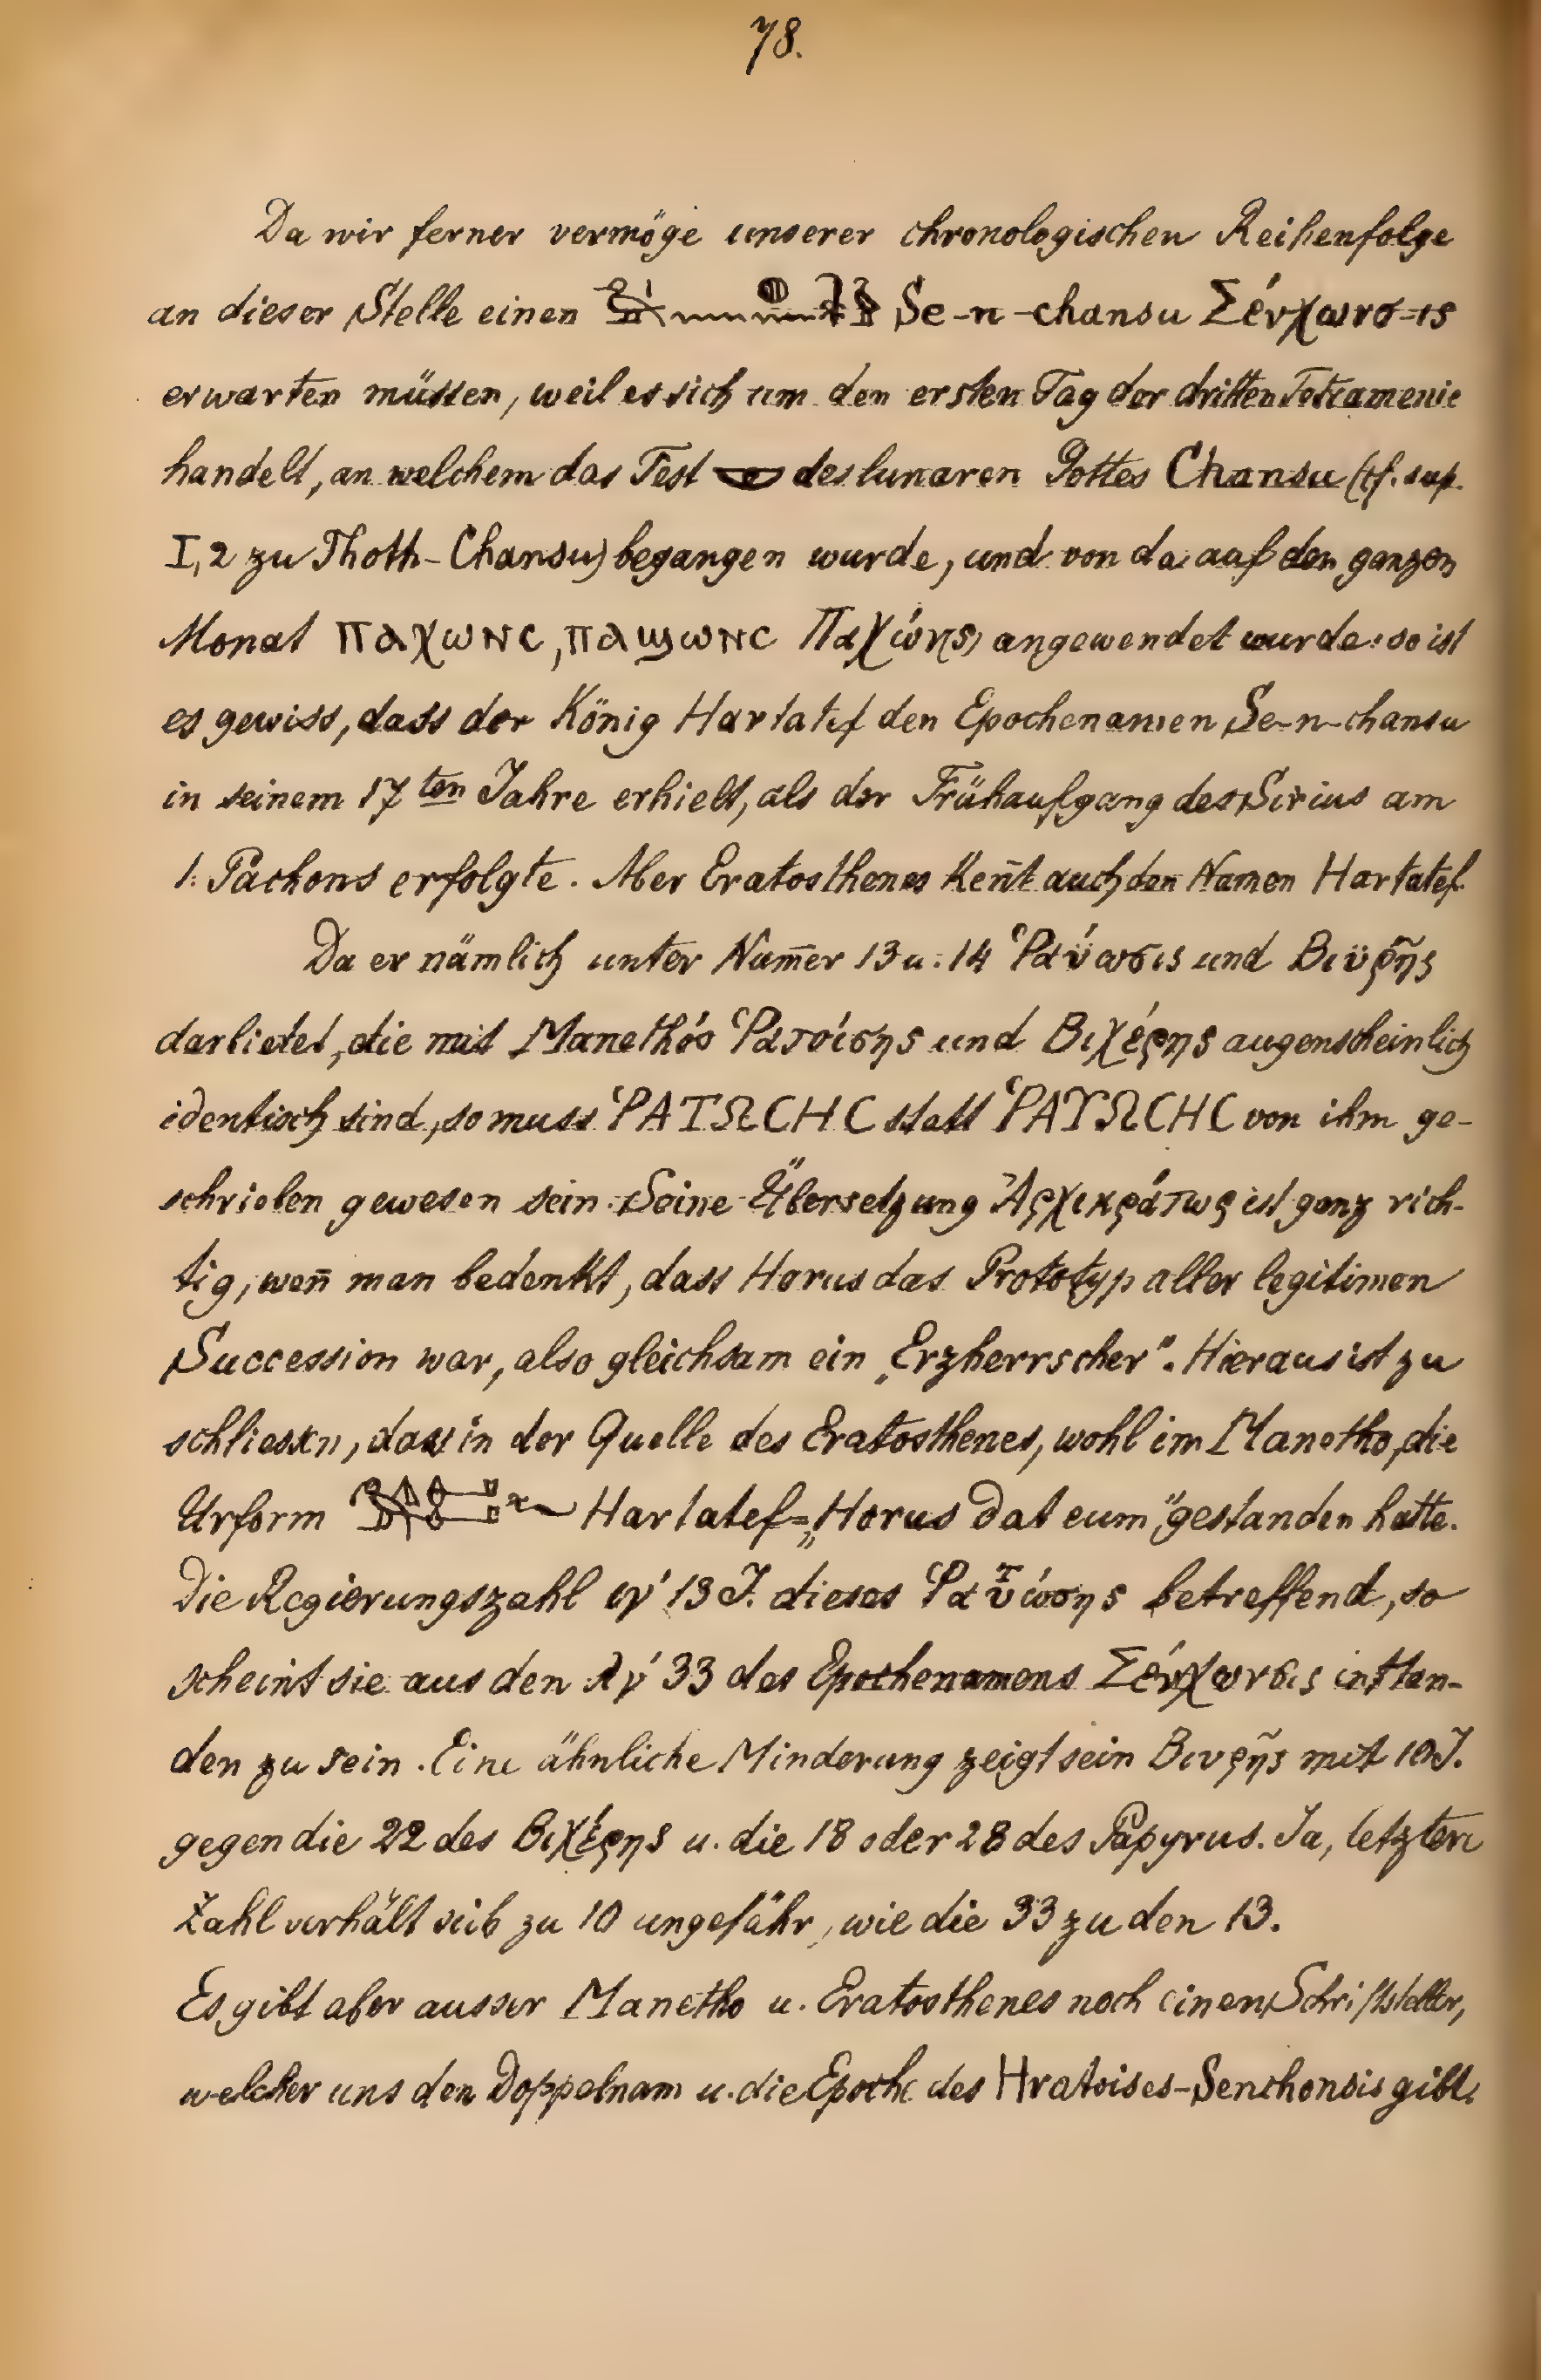 78.
Da wir ferner vermöge unserer chronologischen Reihenfolge
an dieser Stelle einen Se-n-chansu Σένχωνσ=ις
erwarten müssen, weil es sich um den ersten Tag der dritten Tetramenie
handelt, an welchem das Fest des lunaren Gottes Chansu (cf. sup.
I, 2 zu Thoth-Chansu) begangen wurde, und von da auf den ganzen
Monat ⲡⲁⲭⲱⲛⲥ, ⲡⲁϣⲱⲛⲥ Παχώης) angewendet wurde: so ist
es gewiss, dass der König Hartatef den Epochenamen Se-n-chansu
in seinem 17ten Jahre erhielt, als der Frühaufgang des Sirius am
1. Pachons erfolgte. Aber Eratosthenes ken̄t auch den Namen Hartatef.
Da er nämlich unter Num̄er 13 u. 14 Ῥαύωσις und Βιϋρῆς
darbietet, die mit Manethós Ῥατοίσης und Βιχέρης augenscheinlich
identisch sind, so muss ῬΑΤΩCΗC statt ῬΑΥΩCΗC von ihm ge-
schrieben gewesen sein. Seine Übersetzung Ἀρχικράτωρ ist ganz rich-
tig, wen̄ man bedenkt, dass Horus das Prototyp aller legitimen
Succession war, also gleichsam ein „Erzherrscher". Hieraus ist zu
schliessen, dass in der Quelle des Eratosthenes, wohl im Manetho, die
Urform Hartatef = „Horus dat eum" gestanden hatte.
Die Regierungszahl ιγ' 13 J. dieses Ῥαϋώσης betreffend, so
scheint sie aus den λγ' 33 des Epochenamens Σένχωνσις entstan-
den zu sein. Eine ähnliche Minderung zeigt sein Βιυρῆς mit 10 J.
gegen die 22 des Βιχέρης u. die 18 oder 28 des Papyrus. Ja, letztere
Zahl verhält sich zu 10 ungefähr, wie die 33 zu den 13.
Es gibt aber ausser Manetho u. Eratosthenes noch einen Schriftsteller,
welcher uns den Doppelnam u. die Epoche des Hratoises-Senchonsis gibt.